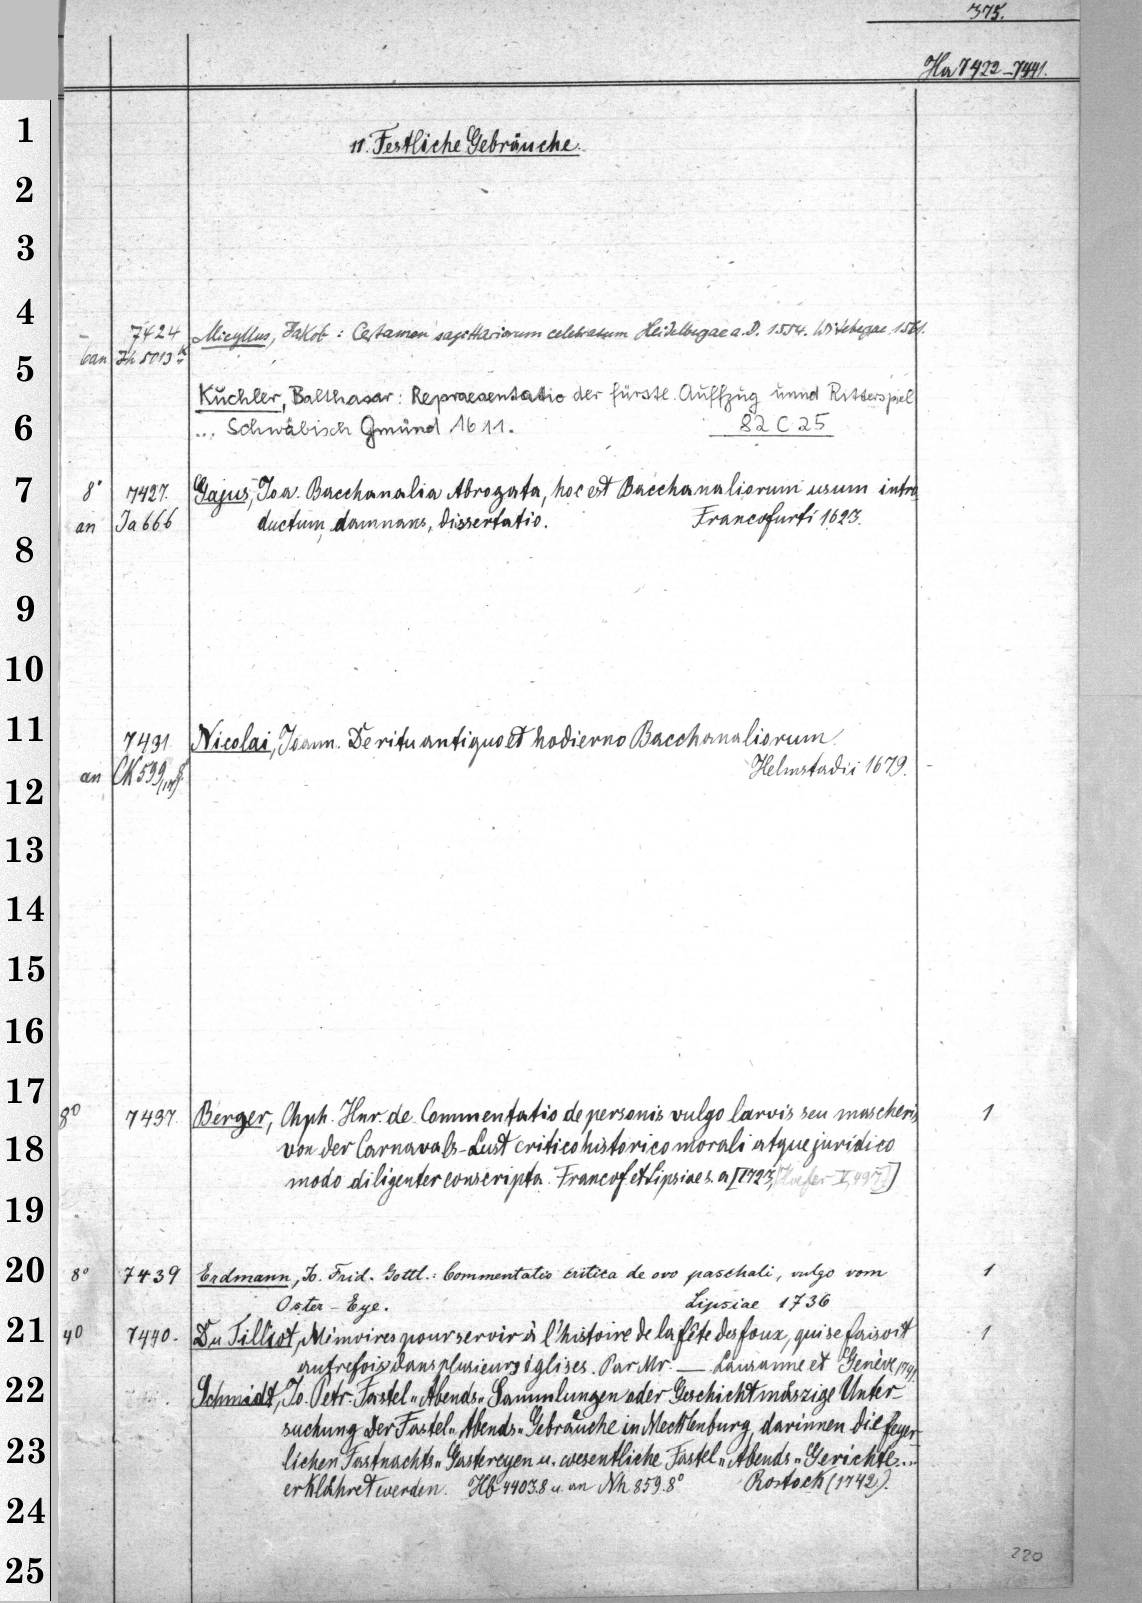 375.
Ha 7422-7441.
11. Festliche Gebräuche.
7424 Micyllus, Jakob: Certamen sagittariorum celebratum Heidelbergae a. D. 1554. Witebergae 1561.
ban
Küchler, Balthasar: Repraesentatio der fürstl. Auffzug unnd Ritterspiel
... Schwäbisch Gmünd 1611. 82 C 25
8° 7427. Gajus, Joa. Bacchanalia Abrogata, hoc est Bacchanaliorum usum intro
an Ja 666 ductum, damnans, dissertatio. Francofurti 1623.
7431. Nicolai, Joann. De ritu antiquo et hodierno Bacchanaliorum.
an CK 599 Helmstadii 1679.
8° 7437. Berger, Chph. Hnr. de Commentatio de personis vulgo larvis seu mascheris, 1
von der Carnavals-Lust critico historico morali atque juridico
modo diligenter conscripta. Francof et Lipsiae s. a [1723,
8° 7439 Erdmann, Jo. Frid. Gottl.: Commentatio critica de ovo paschali, vulgo vom 1
Oster-Eye. Lipsiae 1736
4° 7440. Du Tilliot, Mémoires pour servir à l'histoire de la fête des foux, qui se faisoit 1
autrefois dans plusieurs églises. Par Mr. — Lausanne et Genève, 1741.
Schmidt, Jo. Petr. Fastel-Abends-Sammlungen oder Geschichtmäszige Unter
suchung der Fastel-Abends-Gebräuche in Mecklenburg, darinnen die feyer-
lichen Fastnachts-Gastereyen u. wesentliche Fastel-Abends-Gerichte...
erklähret werden. Hb 4403.8 u. an Nh 859.8° Rostock (1742).
220
1
2
3
4
5
6
7
8
9
10
11
12
13
14
15
16
17
18
19
20
21
22
23
24
25